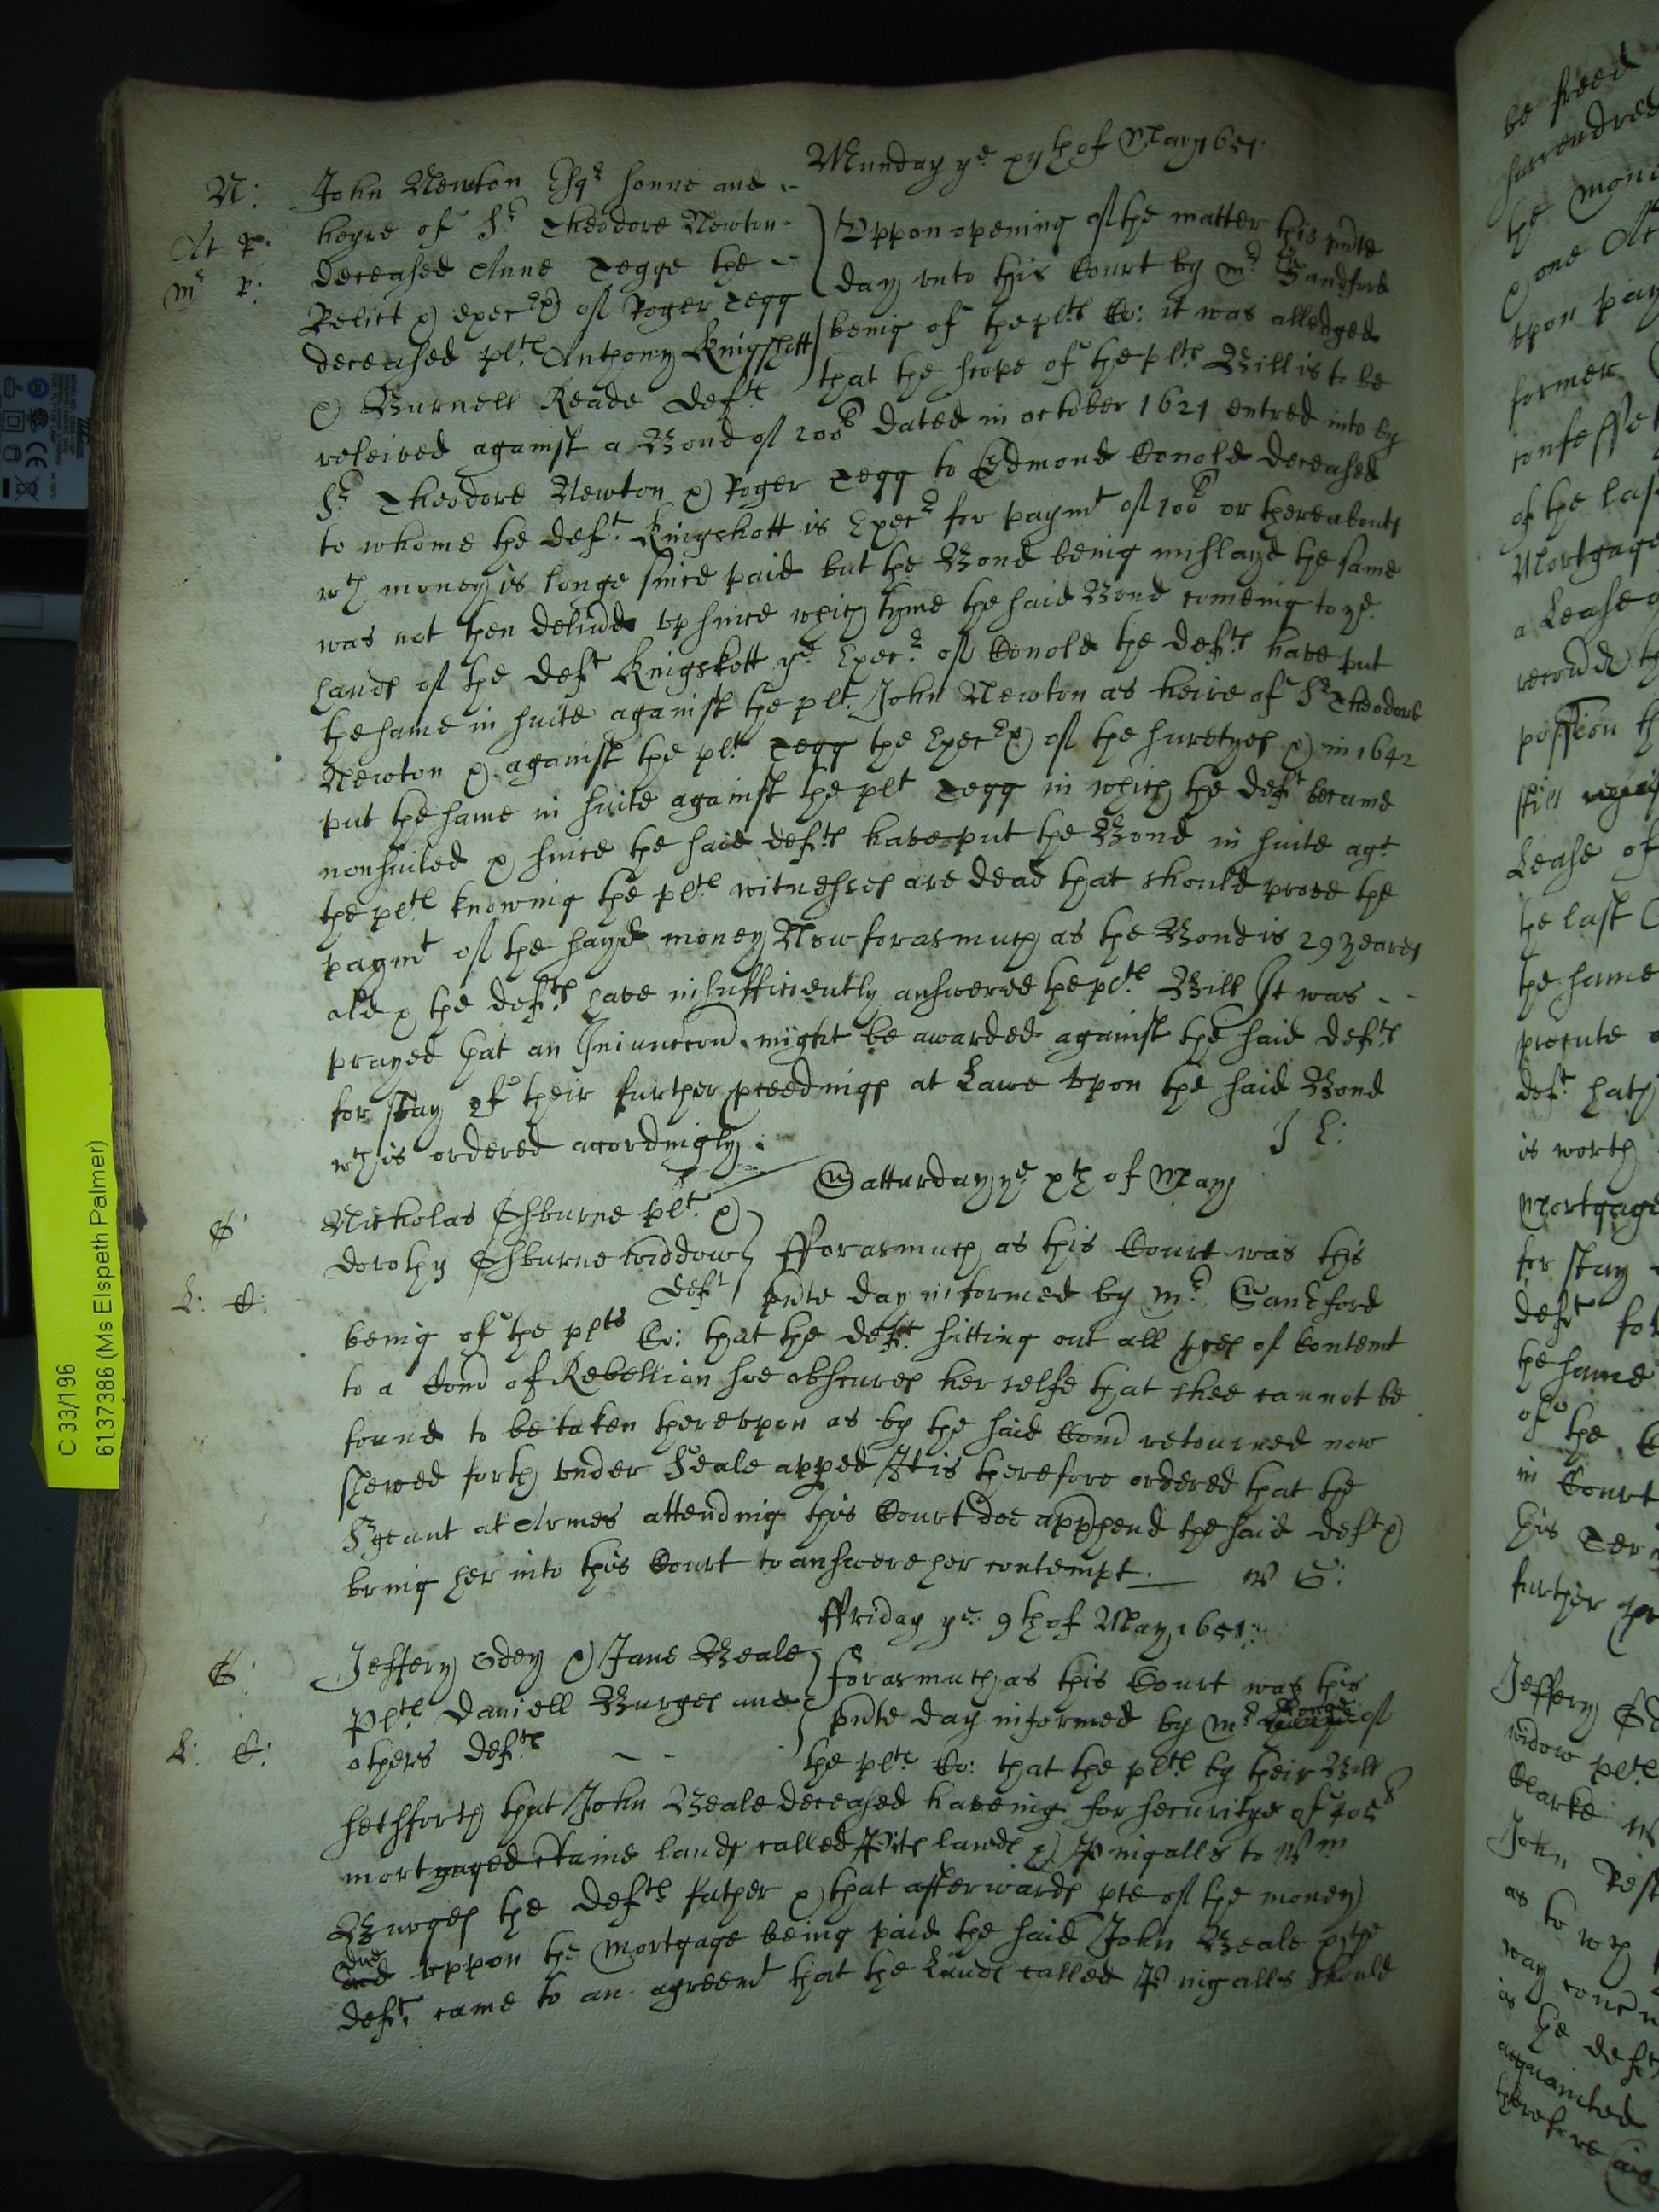 Munday ye xijth of May 1651.
N: John Newton Esqr sonne and
At p. heyre of Sr Theodore Newton
Mr p: deceased Anne Tegge the
Relict & execrx of Roger Tegg
deceased plts Anthony Kingshott
& Burnell Reade Defts
Vppon opening of the matter this pnte
day vnto this Court by Mr Sandford
being of the plts Co: it was alledged
that the scope of the plts Bill is to be
releived against a Bond of 200l dated in october 1621 entred into by
Sr Theodore Newton & Roger Tegg to Edmond Conold deceased
to whome the deft Kingshott is Execr for paymt of 100l or thereabouts
wch money is longe since paid but the Bond being mislayd the same
was not then deliuded vp since which tyme the said Bond comeing to ye
hands of the deft Kingshott ye Execr of Conold the defts have put
the same in suite against the plt John Newton as heire of Sr Theodore
Newton & against the plt Tegg the Execrx of the suretyes & in 1642
put the same in suite against the plt Tegg in which the deft became
nonsuited & since the said defts have put the Bond in suite agt
the plts knowing the plts witnesses are dead that should prove the
paymt of the sayd money Now forasmuch as the Bond is 29 yeares
old & the defts have insufficiently answered the plts Bill It was
prayed that an Iniunccon might be awarded against the said defts
for stay of their further pceedings at Lawe vpon the said Bond
wch is ordered accordingly.
J L:
Satturday ye xth of May
Nicholas Osburne plt &
Dorothy Osburne widdow
deft
L: C:
fforasmuch as this Court was this
pnte day informed by Mr Sandford
being of the plts Co: that the deft sitting out all pces of Contemt
to a Comd of Rebellion soe obscures her selfe that shee cannot be
found to be taken therevpon as by the said Comd retourned now
shewed forth vnder Seale apped It is therefore ordered that the
Srgeant at Armes attending this Court doe apphend the said deft &
bring her into this Court to answere her contempt. W G:
ffriday ye 9th of May 1651:
Jeffery Odey & Jane Beale
plts Daniell Burges and
L: C: others defts
forasmuch as this Court was this
pnte day informed by Mr of
the plts Co: that the plts by their Bill
sethforth that John Beale deceased haveing for securitye of
mortgaged ctaine lands called Pitts lands & Pingalls to Wm
Burges the defts father & that afterwards pte of the money
due vppon the mortgage being paid the said John Beale & the
deft came to an agreemt that the Lands called Pingalls should
C 33/196
6137386 (Ms Elspeth Palmer)
be freed
surrendred
the
one
vpon pay
former
confesse
of the las
Mortgage
a Lease
possion th
still
Lease of
the last
the same
deft hath
is worth
mortgage
for stay
deft for
the same
of the
in Court
his Ter
further
Jeffery
widow plts
Clarke
John
as to wch
way
is the deft
acquainted
therefore